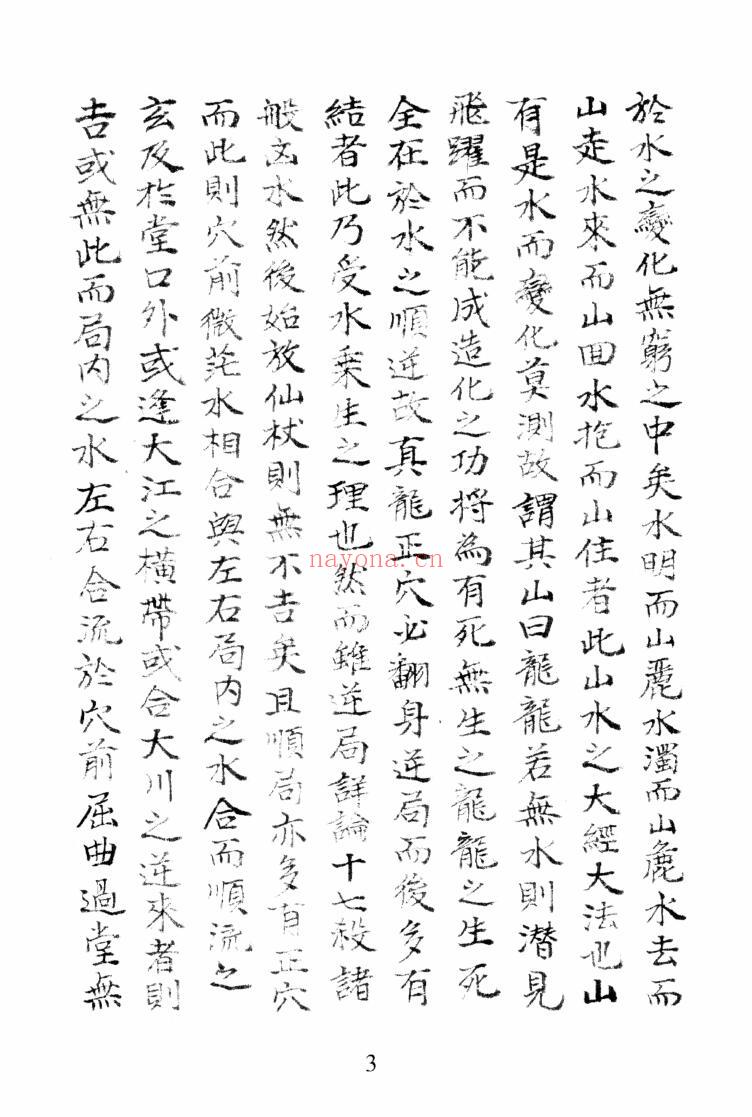 於水之變化無窮之中矣水明而山麗水濁而山麁水去而
山走水來而山回水抱而山住者此山水之大經大法也山
有是水而變化莫測故謂其山曰龍龍若無水則潜見
飛躍而不能成造化之功將為有死無生之龍龍之生死
全在於水之順逆故真龍正穴必翻身逆局而後多有
結者此乃受水乗生之理也然而雖逆局詳論十七殺諸
般凶水然後始放仙杖則無不吉矣且順局亦多有正穴
而此則穴前微茫水相合與左右局内之水合而順流之
玄及於堂口外或逢大江之横帶或合大川之逆來者則
吉或無此而局内之水左右合流於穴前屈曲過堂無
nayona.cn
3